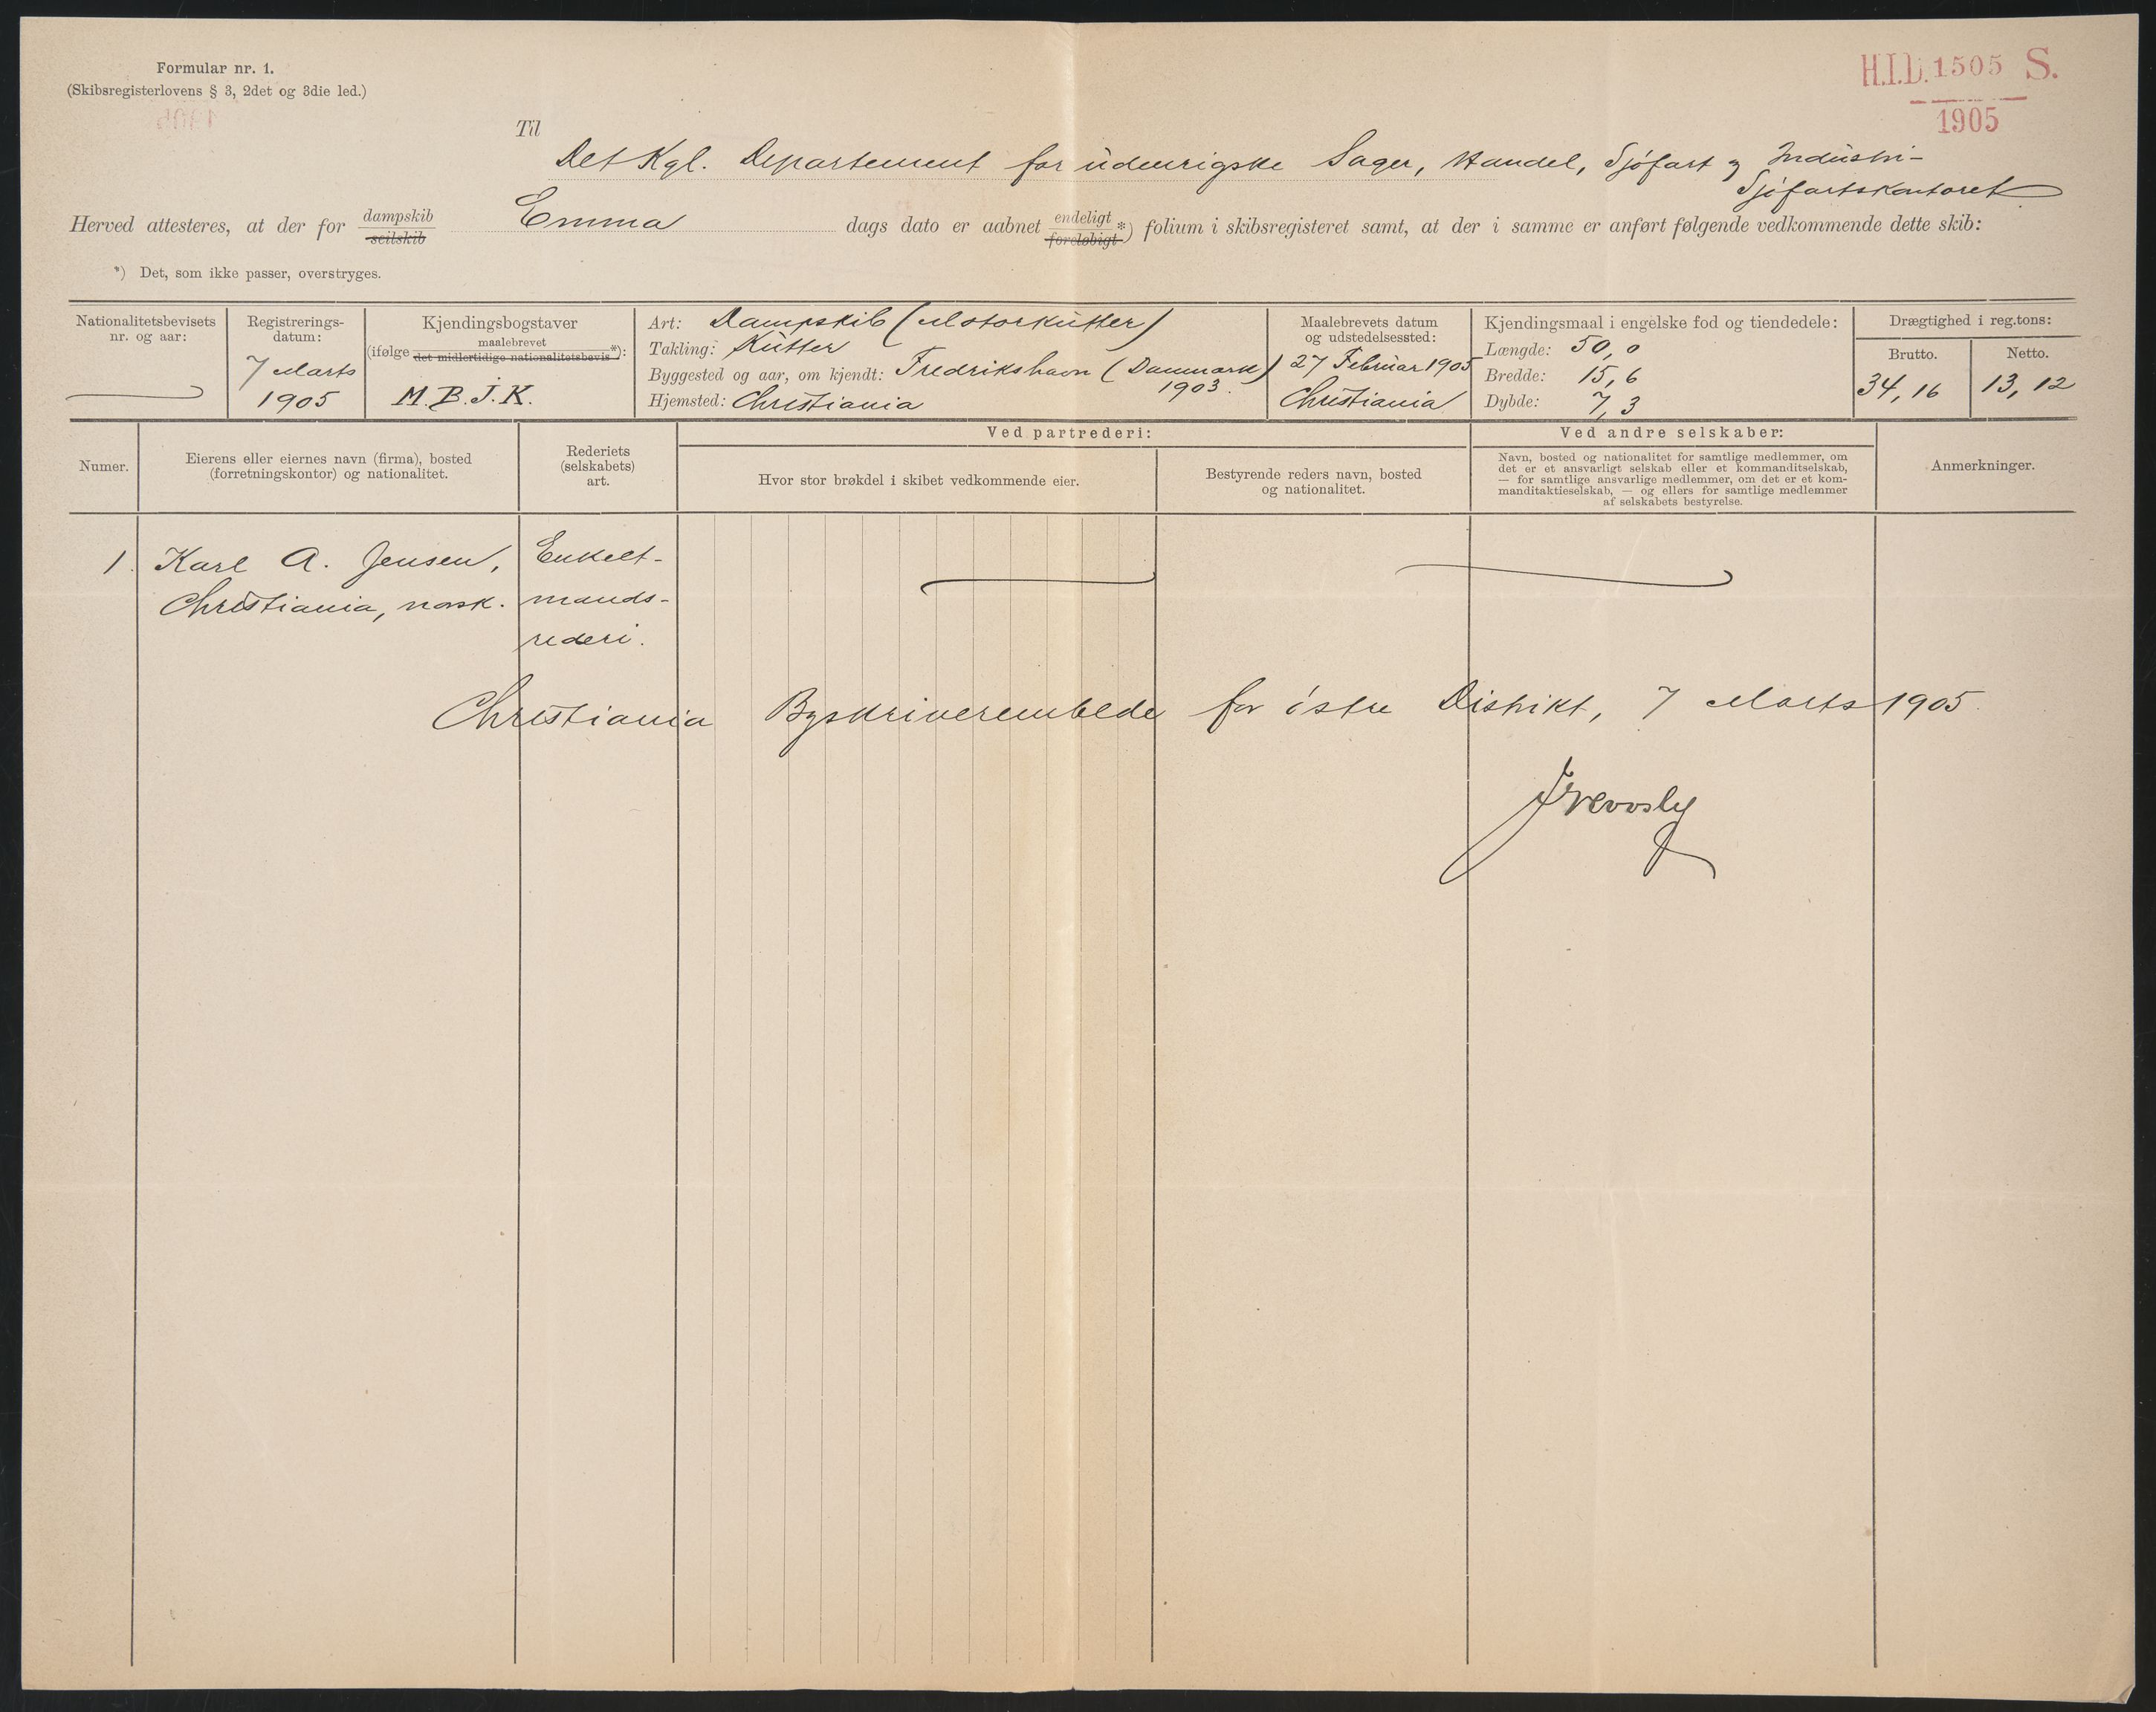 Formular nr. 1.
(Skibsregisterlovens § 3, 2det og 3die led.)
H.I.D. 1505 S.
1905
Til
Det Kgl. Departement for udenrigske Sager, Handel, Sjøfart og Industri-
Sjøfartskontoret
Herved attesteres, at der for dampskib seilskib Emma dags dato er aabnet endeligt foreløbigt *) folium i skibsregisteret samt, at der i samme er anført følgende vedkommende dette skib:
*) Det, som ikke passer, overstryges.
Nationalitetsbevisets
nr. og aar:
Registrerings-
datum:
7 Marts
1905
Kjendingsbogstaver
(ifølge maalebrevet det midlertidige nationalitetsbevis *):
M.B.J.K.
Art: Dampskib (Motorkutter)
Takling: Kutter
Byggested og aar, om kjendt: Fredrikshavn (Danmark)
1903.
Hjemsted: Christiania
Maalebrevets datum
og udstedelsessted:
27 Februar 1905
Christiania
Kjendingsmaal i engelske fod og tiendedele:
Længde: 50,0
Bredde: 15,6
Dybde: 7,3
Drægtighed i reg.tons:
Brutto.
34,16
Netto.
13,12
Numer.
Eierens eller eiernes navn (firma), bosted
(forretningskontor) og nationalitet.
Rederiets
(selskabets)
art.
Ved partrederi:
Hvor stor brøkdel i skibet vedkommende eier.
Bestyrende reders navn, bosted
og nationalitet.
Ved andre selskaber:
Navn, bosted og nationalitet for samtlige medlemmer, om
det er et ansvarligt selskab eller et kommanditselskab,
— for samtlige ansvarlige medlemmer, om det er et kom-
manditaktieselskab, — og ellers for samtlige medlemmer
af selskabets bestyrelse.
Anmerkninger.
1. Karl A. Jensen,
Christiania, norsk.
Enkelt-
mands-
rederi.
Christiania Byskriverembede for østre Distrikt, 7 Marts 1905.